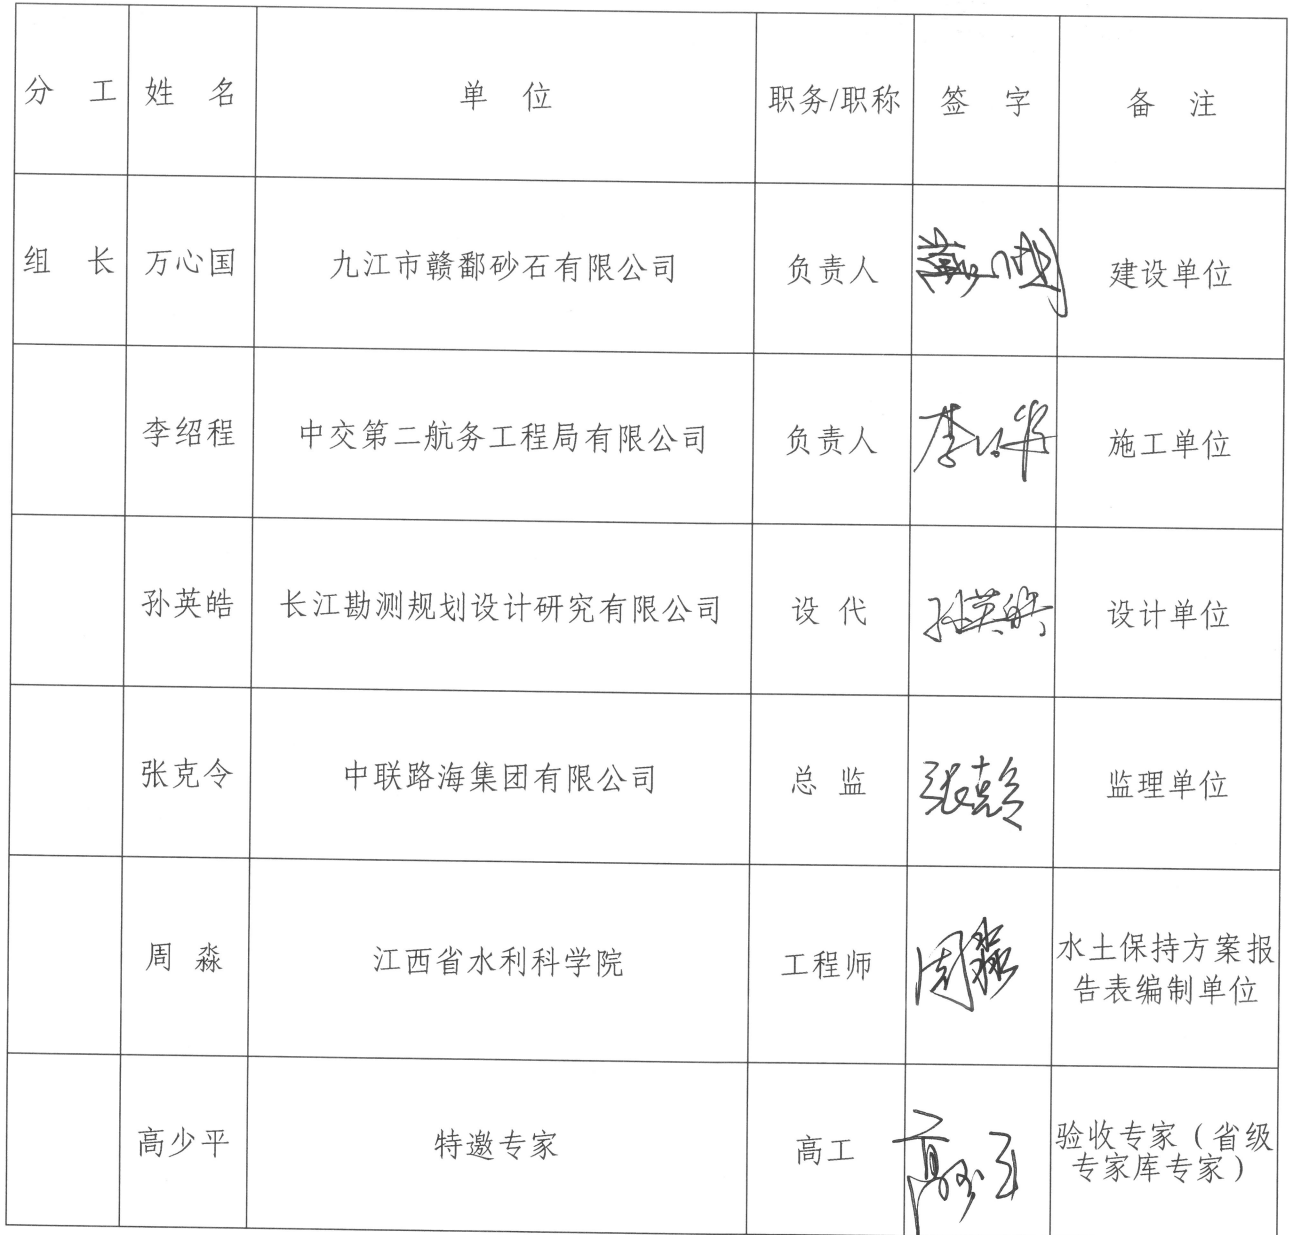 分 工 姓 名 单 位 职务/职称 签 字 备 注
组 长 万心国 九江市赣鄱砂石有限公司 负责人 建设单位
李绍程 中交第二航务工程局有限公司 负责人 施工单位
孙英皓 长江勘测规划设计研究有限公司 设 代 孙英皓 设计单位
张克令 中联路海集团有限公司 总 监 张克令 监理单位
周 淼 江西省水利科学院 工程师 周淼 水土保持方案报
告表编制单位
高少平 特邀专家 高工 高少平 验收专家（省级
专家库专家）